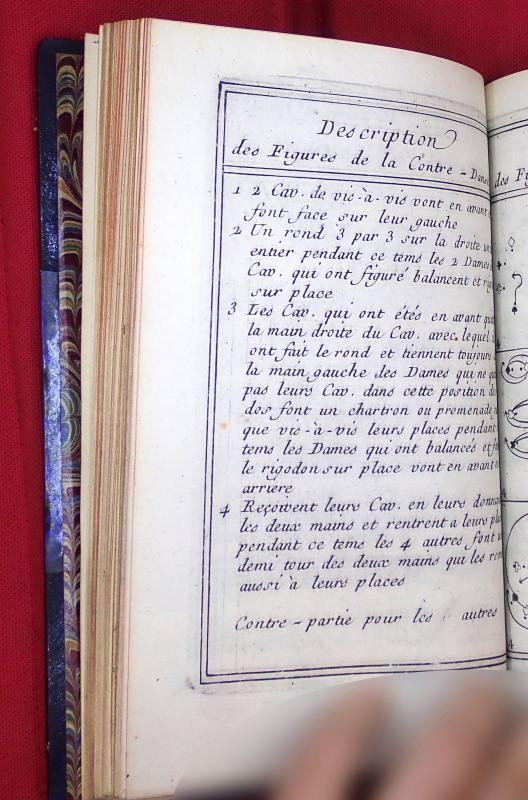 Description
des Figures de la Contre - Dans
1 2 Cav. de vis-à-vis vont en avant
font face sur leur gauche
2 Un rond 3 par 3 sur la droite un
entier pendant ce tems les 2 Dames
Cav. qui ont figuré balancent et rig
sur place
3 Les Cav. qui ont étés en avant qui
la main droite du Cav. avec lequel i
ont fait le rond et tiennent toujours
la main gauche des Dames qui ne qu
pas leurs Cav. dans cette position d
dos font un chartron ou promenade
que vis-à-vis leurs places pendant
tems les Dames qui ont balancés et f
le rigodon sur place vont en avant
arriere
4 Reçoivent leurs Cav. en leurs donna
les deux mains et rentrent à leurs pla
pendant ce tems les 4 autres font u
demi tour des deux mains qui les rem
aussi à leurs places
Contre - partie pour les autres
des Fi